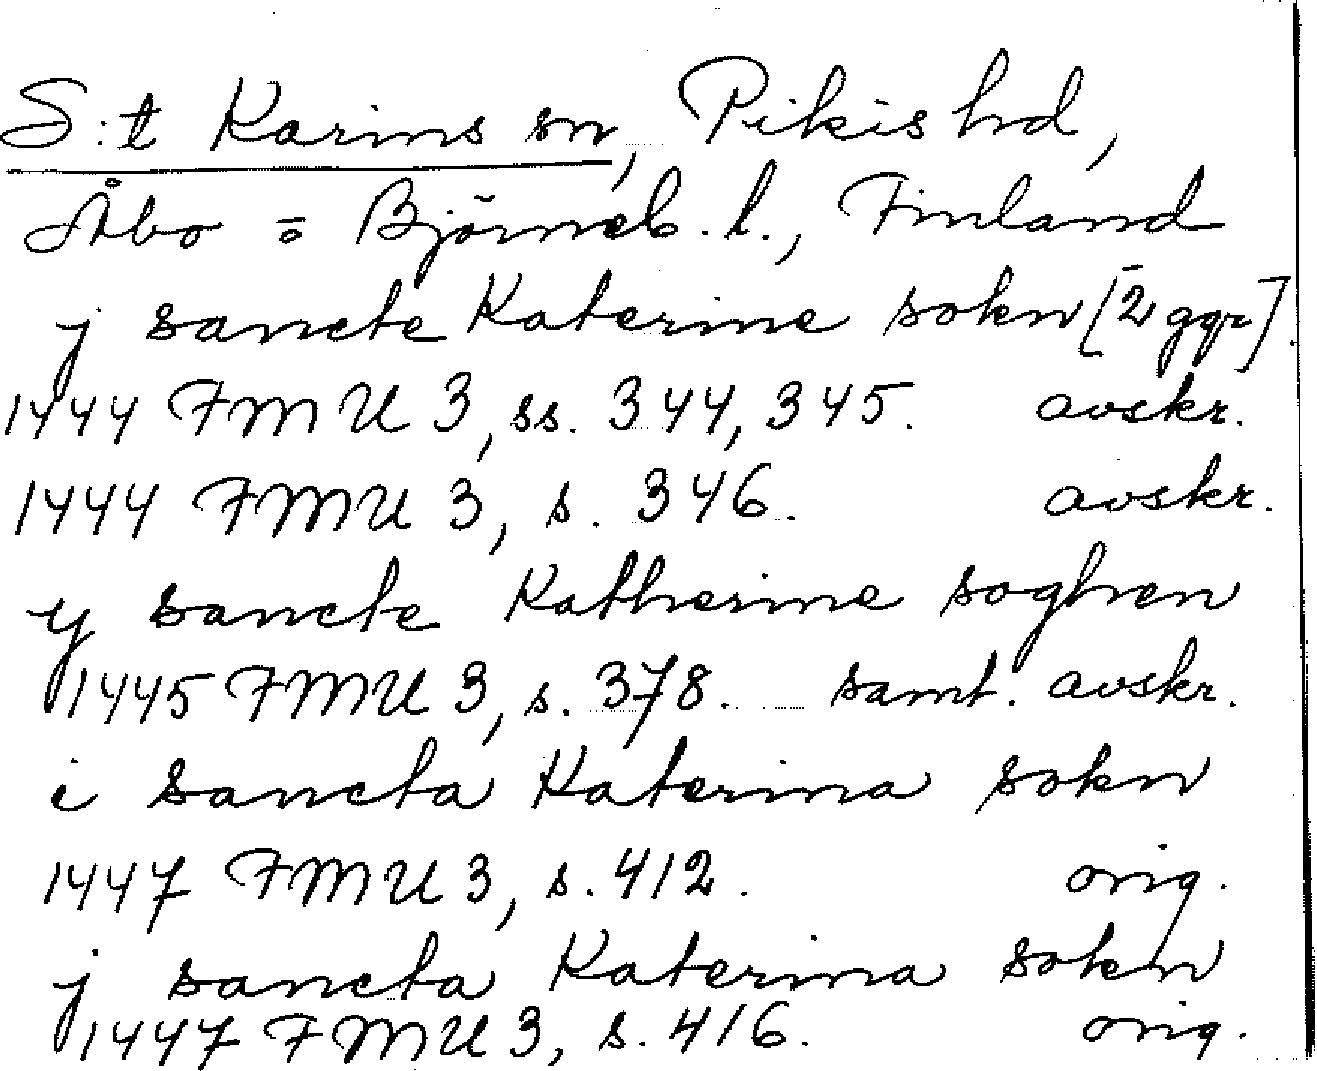 S:t Karins sn, Pikis hd,
Åbo = Björneb. l., Finland
j sancte Katerine sokn [2 ggr]
1444 FMU 3, ss. 344, 345. avskr.
1444 FMU 3, s. 346. avskr.
y sancte Katherine soghen
1445 FMU 3, s. 378. samt. avskr.
i sancta Katerina sokn
1447 FMU 3, s. 412. orig.
j sancta Katerina sokn
1447 FMU 3, s. 416. orig.